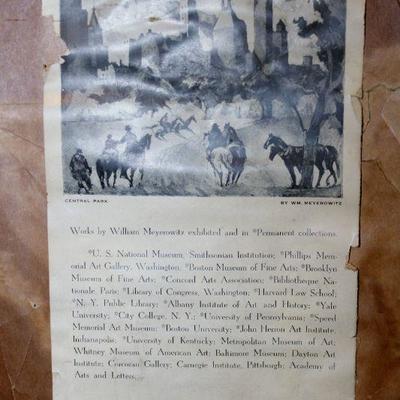 CENTRAL PARK
BY WM. MEYEROWITZ
Works by William Meyerowitz exhibited and in *Permanent collections.
*U. S. National Museum, Smithsonian Institution; *Phillips Mem-
orial Art Gallery, Washington. *Boston Museum of Fine Arts; *Brooklyn
Museum of Fine Arts; *Concord Arts Association; *Bibliotheque Na-
tionale, Paris; *Library of Congress, Washington; *Harvard Law School;
*N. Y. Public Library; *Albany Institute of Art and History; *Yale
University; *City College, N. Y.; *University of Pennsylvania; *Speed
Memorial Art Museum; *Boston University; *John Herron Art Institute,
Indianapolis; *University of Kentucky; Metropolitan Museum of Art;
Whitney Museum of American Art; Baltimore Museum; Dayton Art
Institute; Corcoran Gallery; Carnegie Institute, Pittsburgh; Academy of
Arts and Letters.